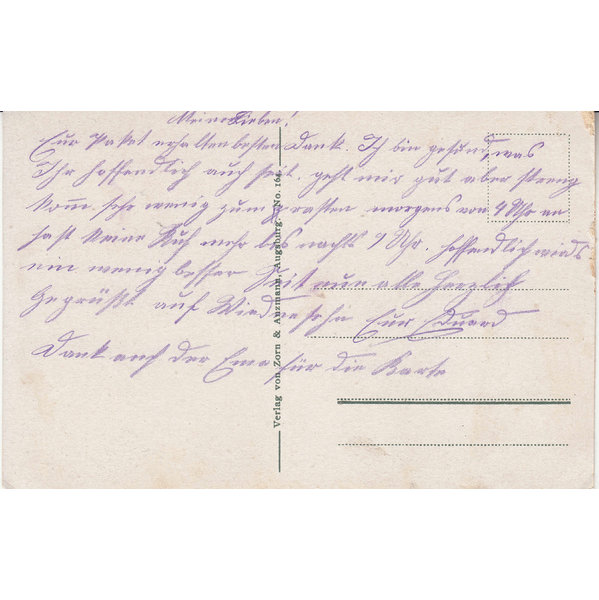 Meine Lieben!
Eur Paket erhalten besten Dank. Ich bin gesund, was
Ihr hoffendlich auch seit. geht mir gut aber streng
komme sehr wenig zum rasten morgens von 4 Uhr an
fast keine Ruh mehr bis nachts 9 Uhr. hoffendlich wirds
ein wenig besser Seit nun alle herzlich
Gegrüßt auf Wiedersehn Eur Eduard
Dank auch der Ema für die Karte
Verlag von Zorn & Anzmann, Augsburg. No. 164